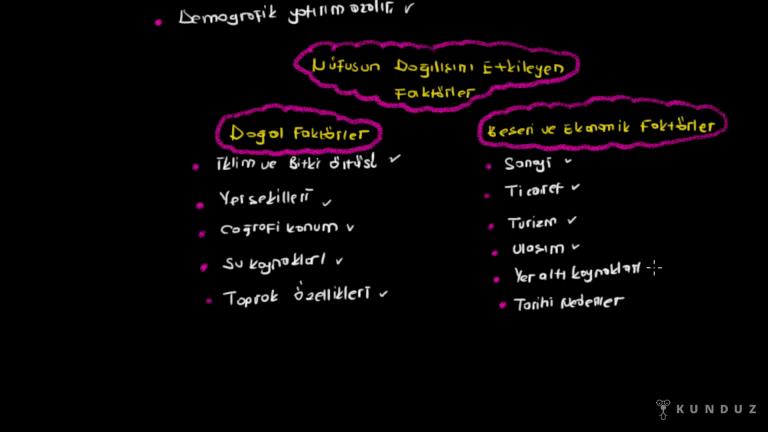 Demografik yatırım azalır.
Nüfusun Dağılışını Etkileyen
Faktörler
Doğal Faktörler
İklim ve Bitki örtüsü
Yerşekilleri
Coğrafi konum
Su kaynakları
Toprak özellikleri
Beşeri ve Ekonomik Faktörler
Sanayi
Ticaret
Turizm
Ulaşım
Yer altı kaynakları
Tarihi Nedenler
KUNDUZ